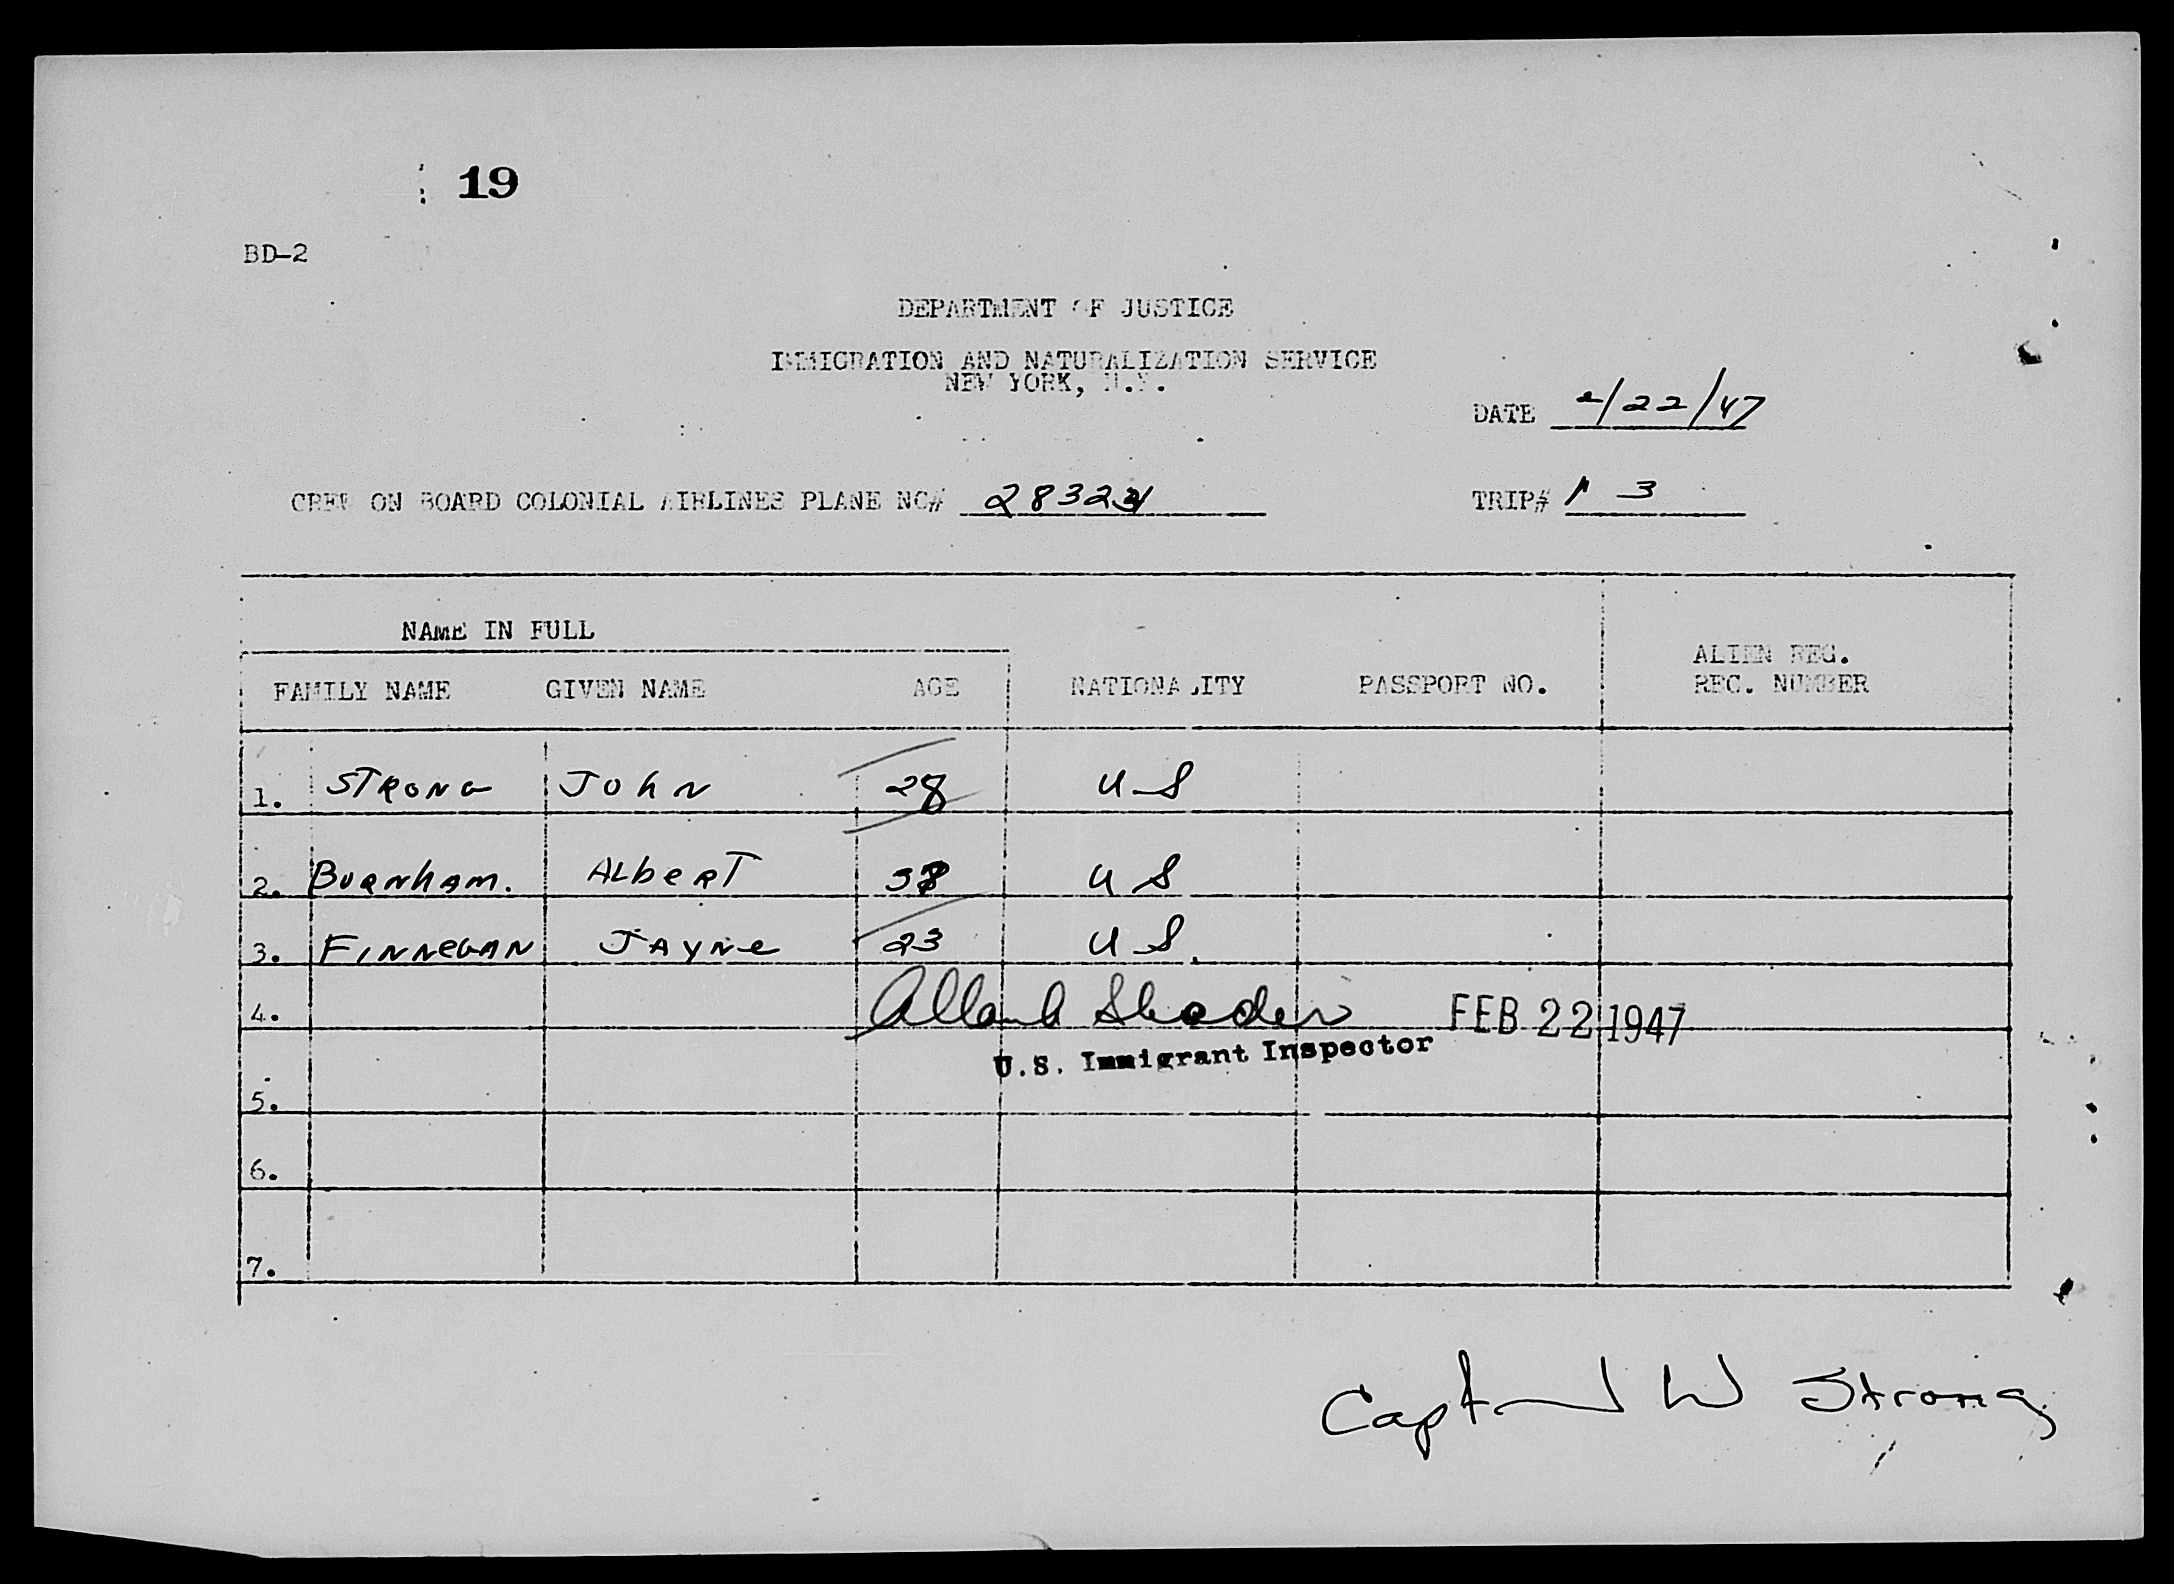 19
BD-2
DEPARTMENT OF JUSTICE
IMMIGRATION AND NATURALIZATION SERVICE
NEW YORK, N.Y.
DATE 2/22/47
CREW ON BOARD COLONIAL AIRLINES PLANE NC#
TRIP# 1 3
NAME IN FULL
FAMILY NAME GIVEN NAME AGE NATIONALITY PASSPORT NO. ALIEN REG.
REC. NUMBER
1. STRONG JOhN 28 U S
2. BURNhAM. ALbeRT U S
3. FINNEGAN JAYNe 23 U S.
4. FEB 22 1947
U.S. Immigrant Inspector
5.
6.
7.
Capt J W Strong